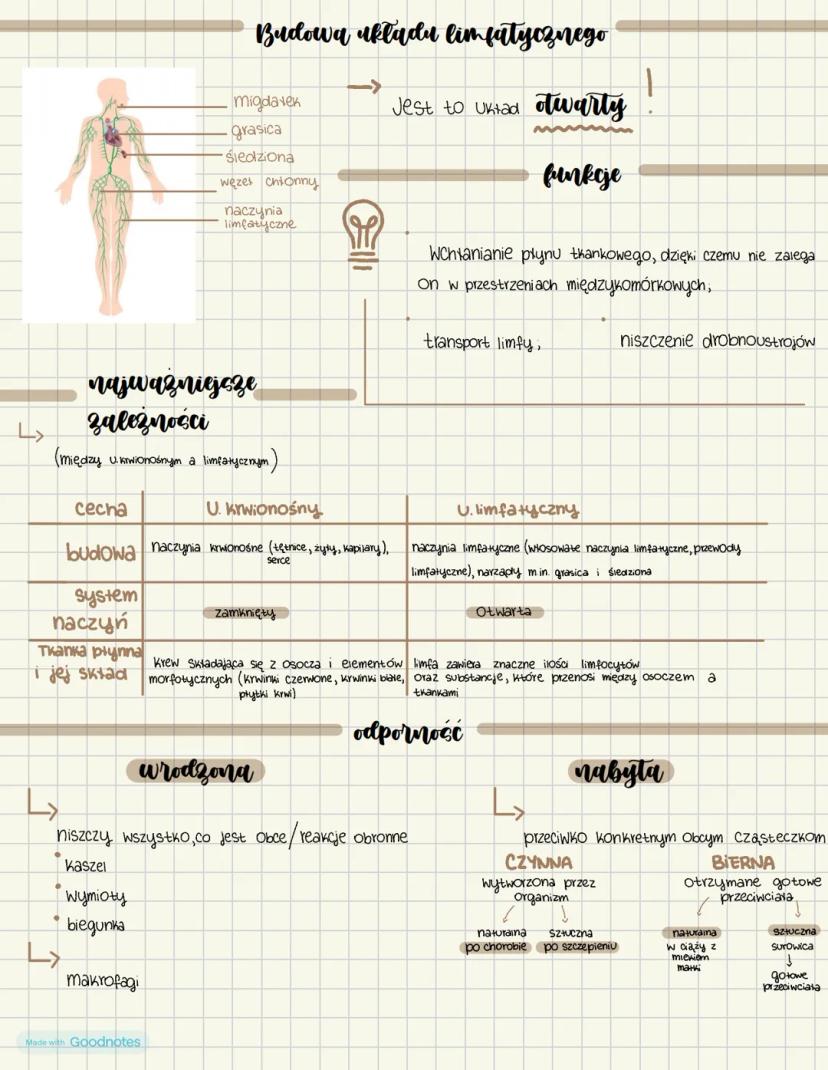 Budowa układu limfatycznego
migdałek
grasica
śledziona
węzeł chłonny
naczynia
limfatyczne
jest to układ otwarty !
funkcje
wchłanianie płynu tkankowego, dzięki czemu nie zalega
on w przestrzeniach międzykomórkowych;
transport limfy;
niszczenie drobnoustrojów
najważniejsze
zależności
(między u.krwionośnym a limfatycznym)
cecha
U. krwionośny
U. limfatyczny
budowa
naczynia krwionośne (tętnice, żyły, kapilary),
serce
naczynia limfatyczne (włosowate naczynia limfatyczne, przewody
limfatyczne), narządy m in. grasica i śledziona
system
naczyń
zamknięty
otwarta
Tkanka płynna
i jej skład
krew składająca się z osocza i elementów
morfotycznych (krwinki czerwone, krwinki białe,
płytki krwi)
limfa zawiera znaczne ilości limfocytów
oraz substancje, które przenosi między osoczem a
tkankami
odporność
wrodzona
niszczy wszystko,co jest obce/reakcje obronne
kaszel
wymioty
biegunka
makrofagi
nabyta
przeciwko konkretnym obcym cząsteczkom
CZYNNA
wytworzona przez
organizm
naturalna
po chorobie
sztuczna
po szczepieniu
BIERNA
otrzymane gotowe
przeciwciała
naturalna
w ciąży z
mlekiem
matki
sztuczna
surowica
gotowe
przeciwciała
Made with Goodnotes